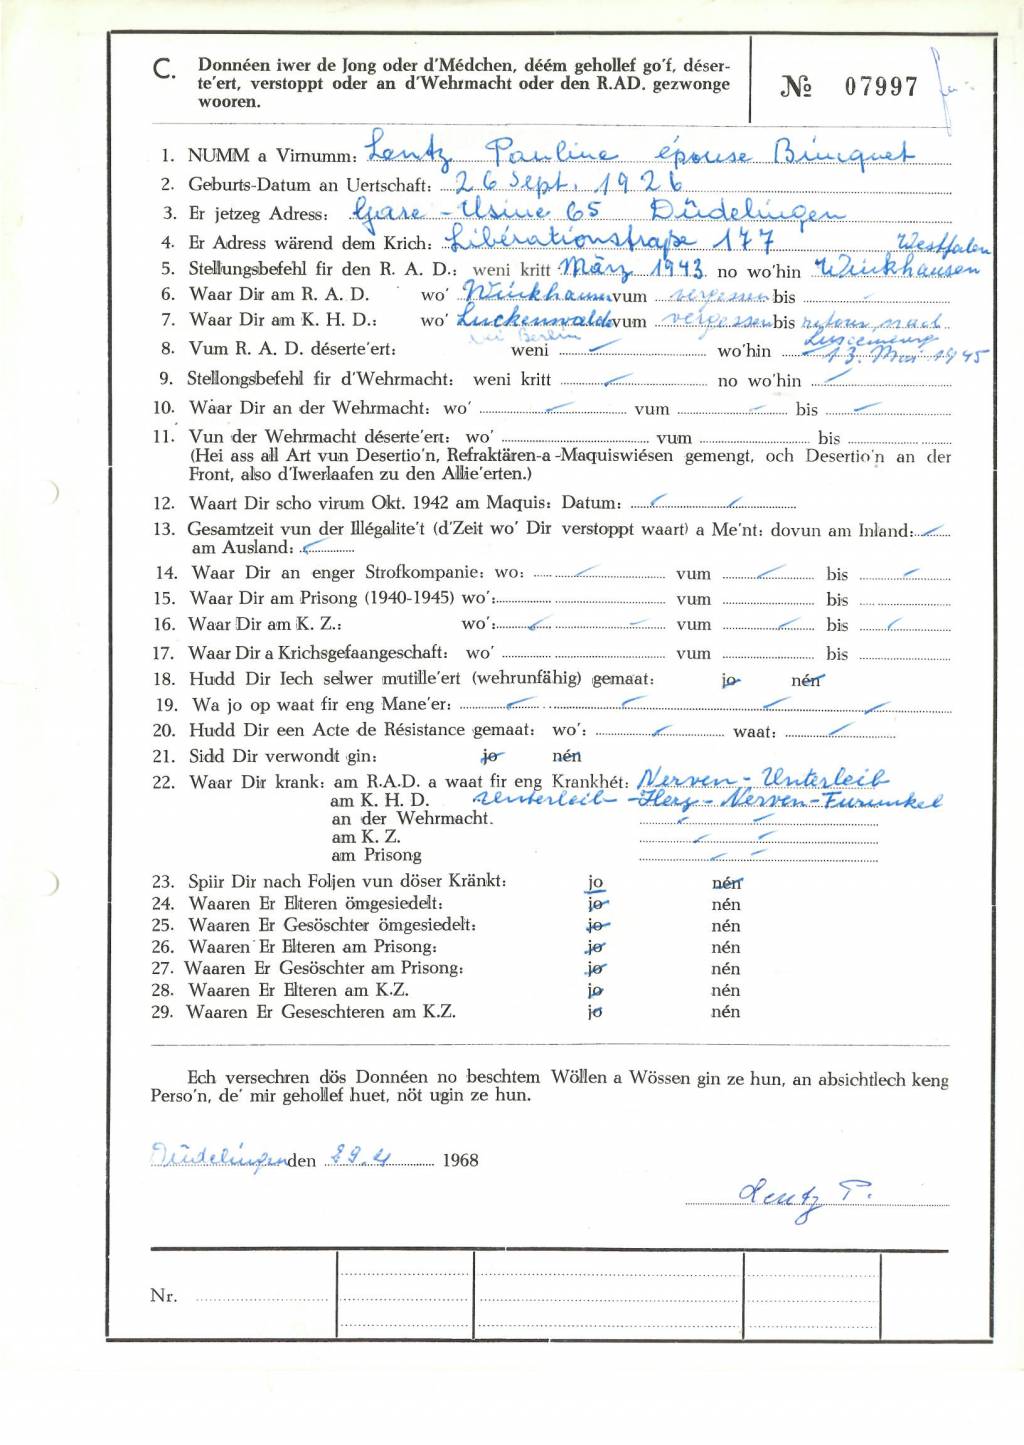 C. Donnéen iwer de Jong oder d'Médchen, déém gehollef go'f, déser-
te'ert, verstoppt oder an d'Wehrmacht oder den R.AD. gezwonge
wooren.
№ 07997
1. NUMM a Virnumm: Lentz Pauline épouse Binquet
2. Geburts-Datum an Uertschaft: 26 Sept. 1926
3. Er jetzeg Adress: Gare - Usine 65 Düdelingen
4. Er Adress wärend dem Krich: Libérationstraße 177 Westfalen
5. Stellungsbefehl fir den R. A. D.: weni kritt März 1943 no wo'hin Wünkhausen
6. Waar Dir am R. A. D. wo' Wünkhausen vum vergessen bis
7. Waar Dir am K. H. D.: wo' Luckenwalde vum vergessen bis retour nach
bei Berlin Luxemburg
8. Vum R. A. D. déserte'ert: weni wo'hin 13. Mai 1945
9. Stellongsbefehl fir d'Wehrmacht: weni kritt no wo'hin
10. Waar Dir an der Wehrmacht: wo' vum bis
11. Vun der Wehrmacht déserte'ert: wo' vum bis
(Hei ass all Art vun Desertio'n, Refraktären-a-Maquiswiésen gemengt, och Desertio'n an der
Front, also d'Iwerlaafen zu den Allie'erten.)
12. Waart Dir scho virum Okt. 1942 am Maquis: Datum:
13. Gesamtzeit vun der Illégalite't (d'Zeit wo' Dir verstoppt waart) a Me'nt: dovun am Inland:
am Ausland:
14. Waar Dir an enger Strofkompanie: wo: vum bis
15. Waar Dir am Prisong (1940-1945) wo': vum bis
16. Waar Dir am K. Z.: wo': vum bis
17. Waar Dir a Krichsgefaangeschaft: wo' vum bis
18. Hudd Dir Iech selwer mutille'ert (wehrunfähig) gemaat: jo nén
19. Wa jo op waat fir eng Mane'er:
20. Hudd Dir een Acte de Résistance gemaat: wo': waat:
21. Sidd Dir verwondt gin: jo nén
22. Waar Dir krank: am R.A.D. a waat fir eng Krankhét: Nerven - Unterleib
am K. H. D. Unterleib - Herz - Nerven - Furunkel
an der Wehrmacht.
am K. Z.
am Prisong
23. Spiir Dir nach Foljen vun döser Kränkt: jo nén
24. Waaren Er Elteren ömgesiedelt: jo nén
25. Waaren Er Gesöschter ömgesiedelt: jo nén
26. Waaren Er Elteren am Prisong: jo nén
27. Waaren Er Gesöschter am Prisong: jo nén
28. Waaren Er Elteren am K.Z. jo nén
29. Waaren Er Geseschteren am K.Z. jo nén
Ech versechren dös Donnéen no beschtem Wöllen a Wössen gin ze hun, an absichtlech keng
Perso'n, de' mir gehollef huet, nöt ugin ze hun.
Düdelingen den 29.4 1968
Lentz P.
Nr.